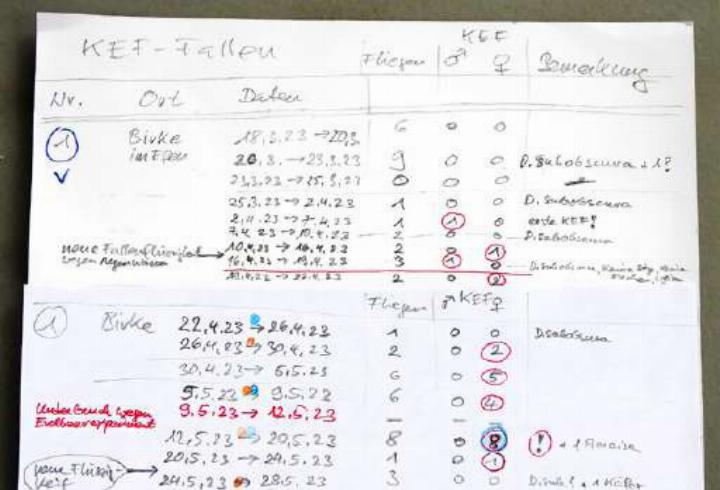 KEF
KEF-Fallen Fliegen ♂ ♀ Bemerkung
Nr. Ort Daten
1 Birke 18.3.23 → 20.3. 6 0 0
im Efeu 20.3. → 23.3.23 9 0 0 D. subobscura + 1?
23.3.23 → 25.3.23 0 0 0
25.3.23 → 2.4.23 1 0 0 D. subobscura
→ 7.4.23 1 1 0 erste KEF!
7.4.23 → 10.4.23 2 0 0 D. subobscura
neue Fallenflüssigkeit → 10.4.23 → 16.4.23 2 0 1
wegen 16.4.23 → 19.4.23 3 1 0 D. subobscura, keine
19.4.23 → 22.4.23 2 0
Fliegen ♂ KEF ♀
1 Birke 22.4.23 → 26.4.23 1 0 0 D. subobscura
26.4.23 → 30.4.23 2 0 2
30.4.23 → 5.5.23 6 0 5
5.5.23 → 9.5.22 6 0 4
Unterbruch wegen 9.5.23 → 12.5.23 – – –
Erdbeerexperiment
12.5.23 → 20.5.23 8 0 8 ! + 1 Ameise
20.5.23 → 24.5.23 1 0 1
neue Flüssigkeit → 24.5.23 → 28.5.23 3 0 0 + 1 Käfer